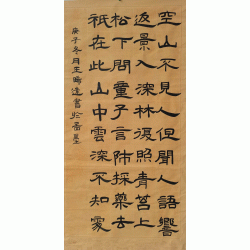 空山不見人但聞人語響
返景入深林復照青苔上
松下問童子言師採藥去
祇在此山中雲深不知處
庚子冬月王達書於